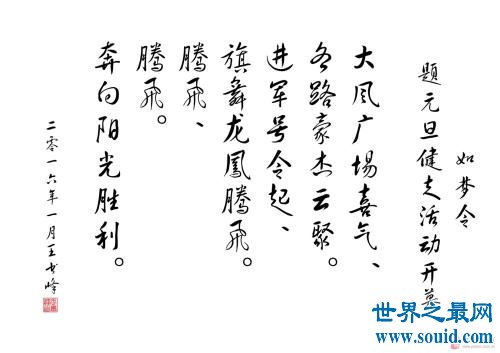 如梦令
题元旦健走活动开幕
大风广场喜气、
各路豪杰云聚。
进军号令起、
旗舞龙凤腾飞。
腾飞、
腾飞。
奔向阳光胜利。
二零一六年一月王书峰
世界之最网
www.souid.com